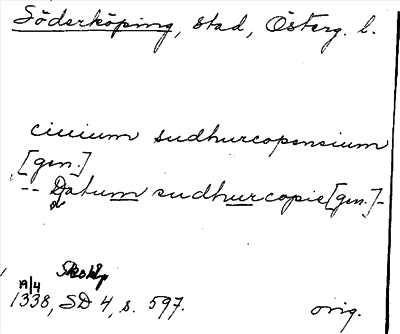 Söderköping, stad, Österg. l.
ciuium sudhurcopensium
[gen.]
-- Datum sudhurcopie [gen.] -
19/4
1338, SD 4, s. 597.
orig.